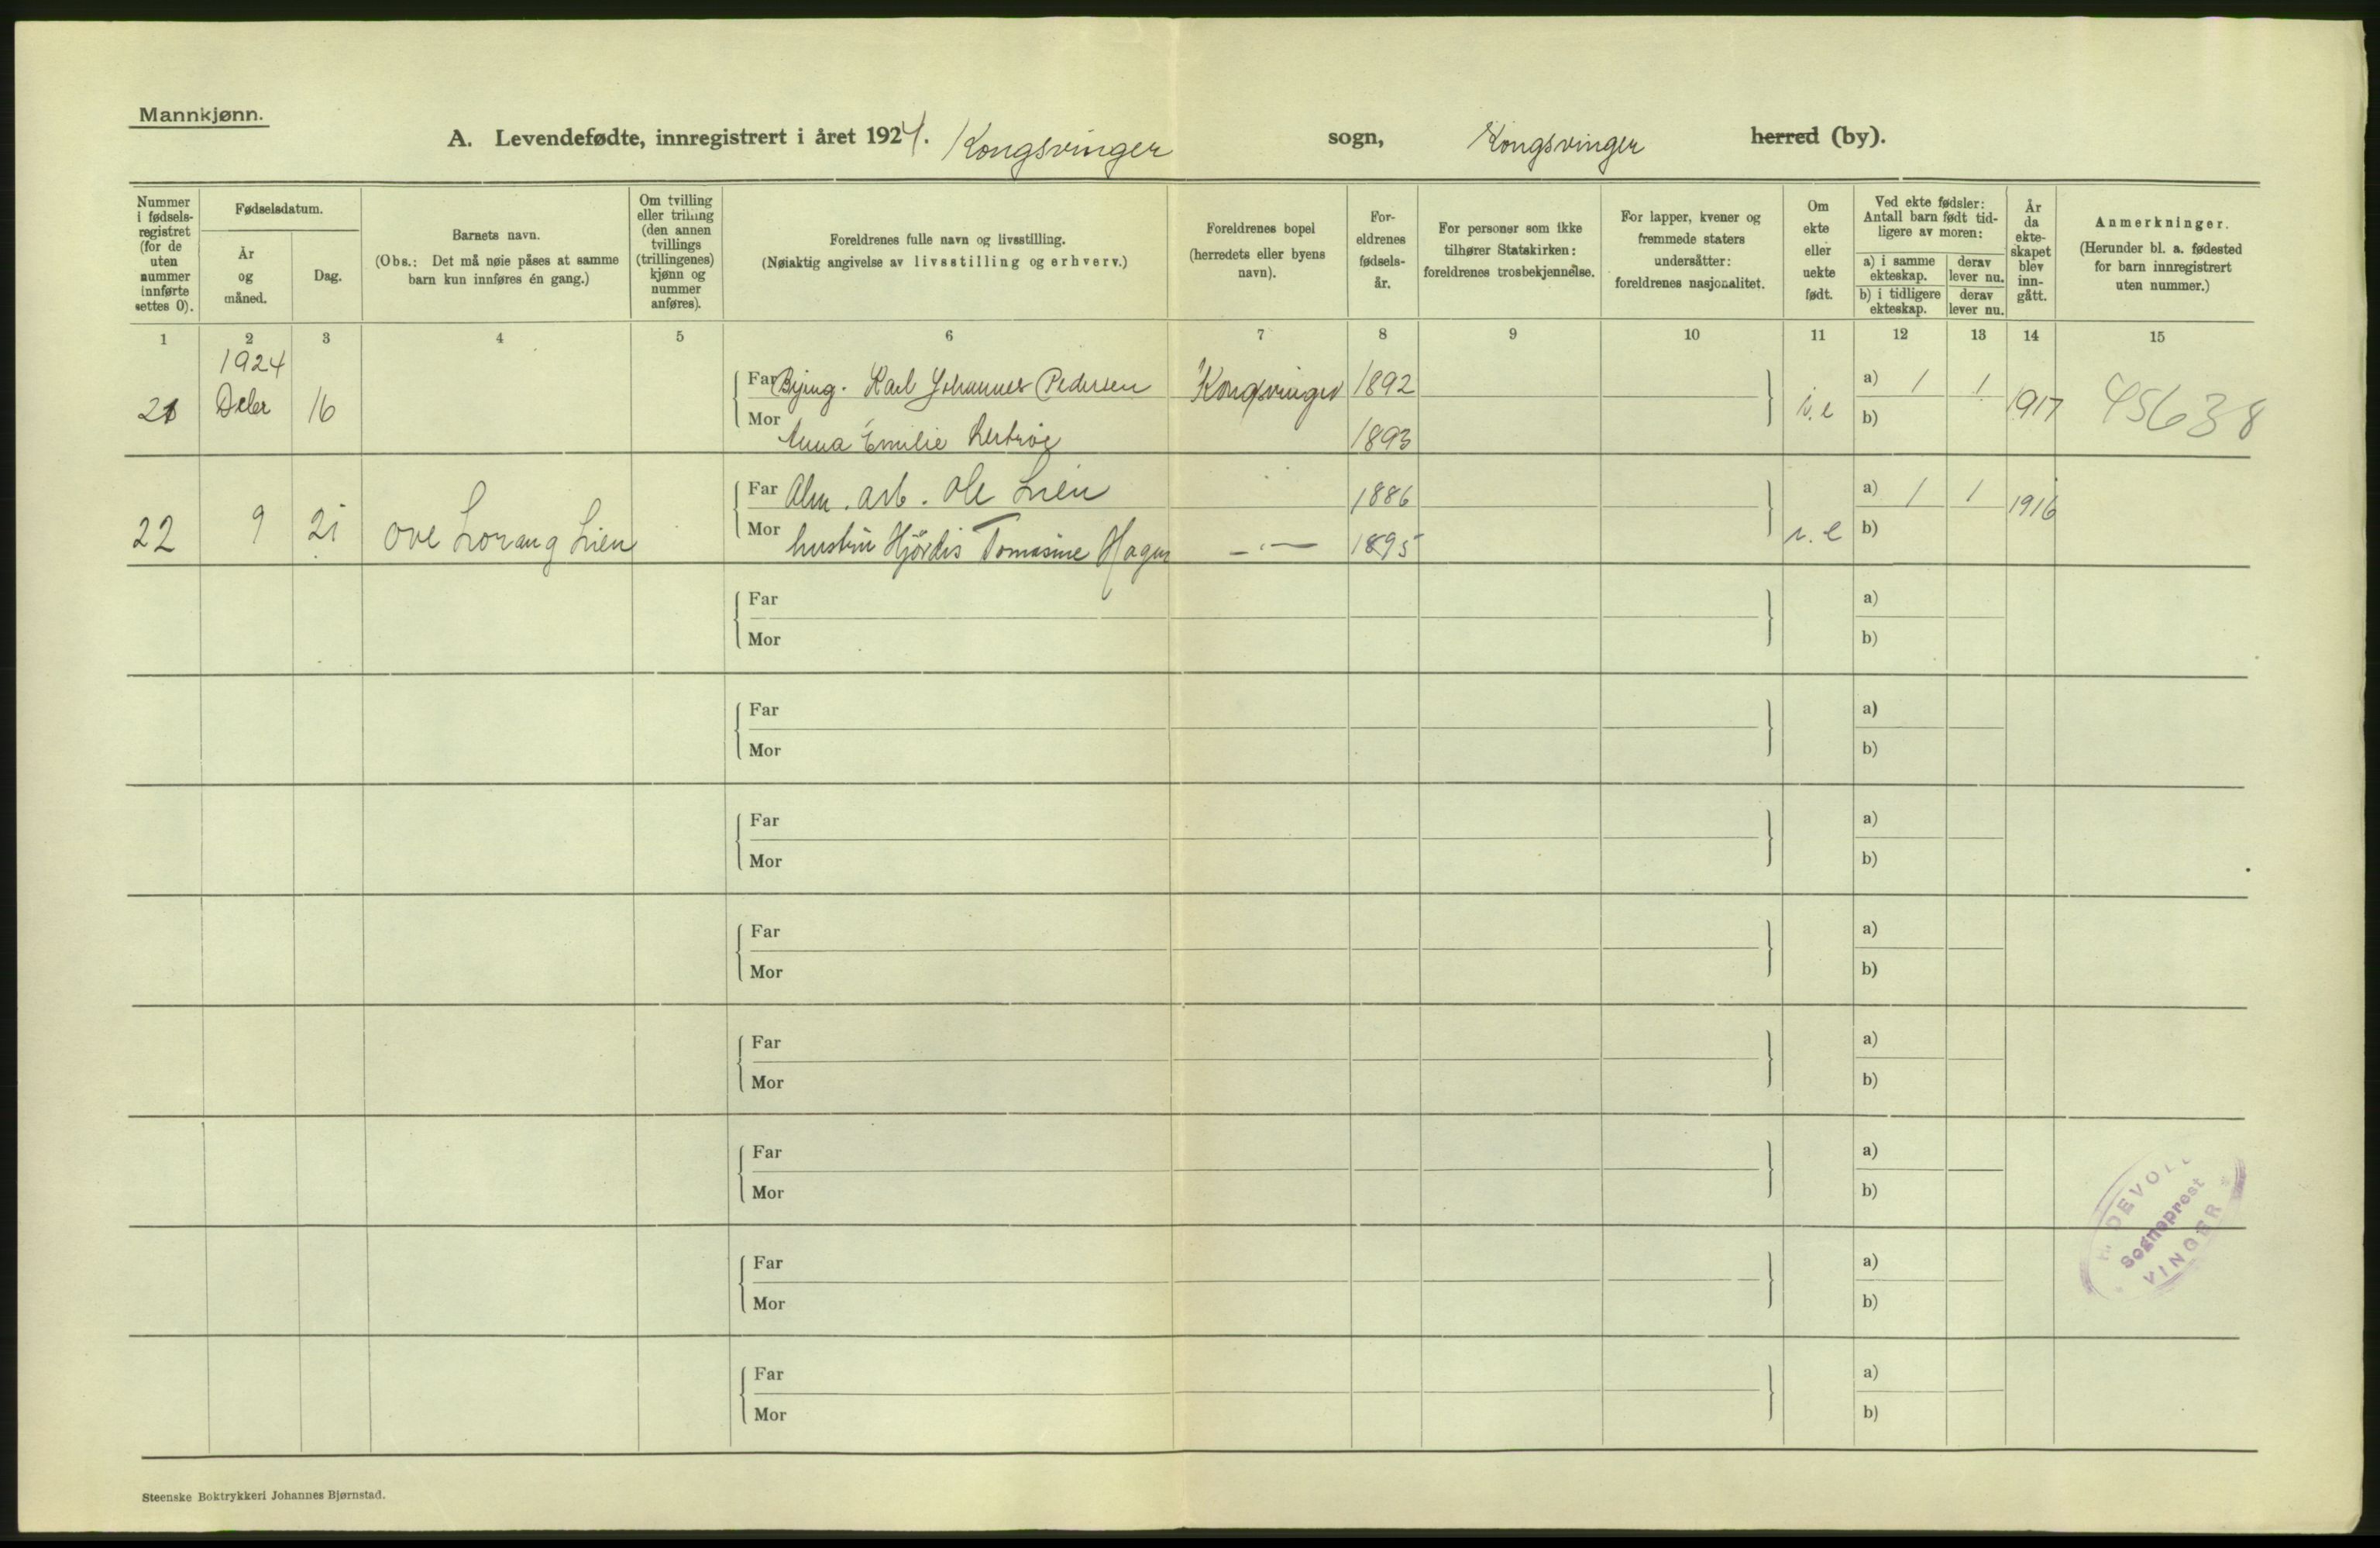 Mannkjønn.
A. Levendefødte, innregistrert i året 1924. Kongsvinger sogn, Kongsvinger herred (by).
Nummer i fødsels-registret (for de uten nummer innførte settes 0).
Fødselsdatum.
År og måned.
Dag.
Barnets navn.
(Obs.: Det må nøie påses at samme barn kun innføres én gang.)
Om tvilling eller trilling (den annen tvillings (trillingenes) kjønn og nummer anføres).
Foreldrenes fulle navn og livsstilling.
(Nøiaktig angivelse av livsstilling og erhverv.)
Foreldrenes bopel
(herredets eller byens navn).
For-eldrenes fødsels-år.
For personer som ikke tilhører Statskirken: foreldrenes trosbekjennelse.
For lapper, kvener og fremmede staters undersåtter: foreldrenes nasjonalitet.
Om ekte eller uekte født.
Ved ekte fødsler: Antall barn født tid-ligere av moren:
a) i samme ekteskap.
derav lever nu.
b) i tidligere ekteskap.
derav lever nu.
År da ekte-skapet blev inn-gått.
Anmerkninger.
(Herunder bl. a. fødested for barn innregistrert uten nummer.)
1 2 3 4 5 6 7 8 9 10 11 12 13 14 15
1924
Far Karl Johannes Pedersen Kongsvinger 1892 a) 1 1
21 16 1917 45638
Mor Anna Emilie 1893 b)
Far Alm. arb. Ole Lien 1886 a) 1 1 1916
22 9 21 Ove Lorang Lien
Mor hustru Hjördis Tomasine Hagen 1895 b)
Far a)
Mor b)
Far a)
Mor b)
Far a)
Mor b)
Far a)
Mor b)
Far a)
Mor b)
Far a)
Mor b)
Far a)
Mor b)
Far a)
Mor b)
Sogneprest
VINGER
Steenske Boktrykkeri Johannes Bjørnstad.